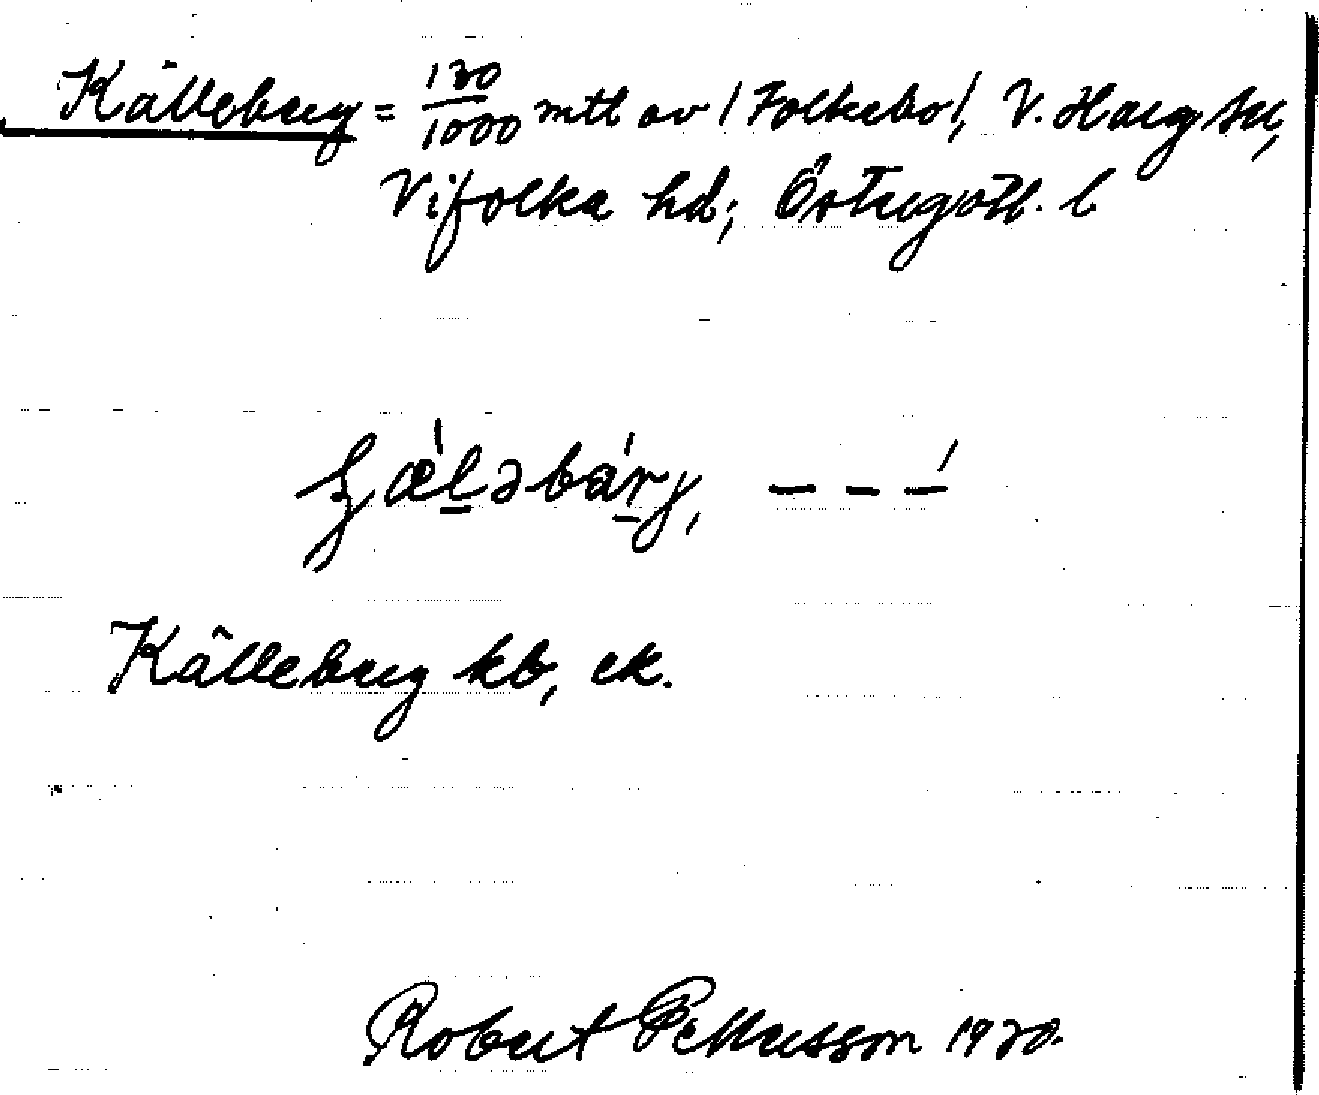 Källeberg = 120/1000 mtl av /Folkebo/, V. Harg sn,
Vifolka hd; Östergötl. l
Källeberg kb, ek.
Robert Pettersson 1920.